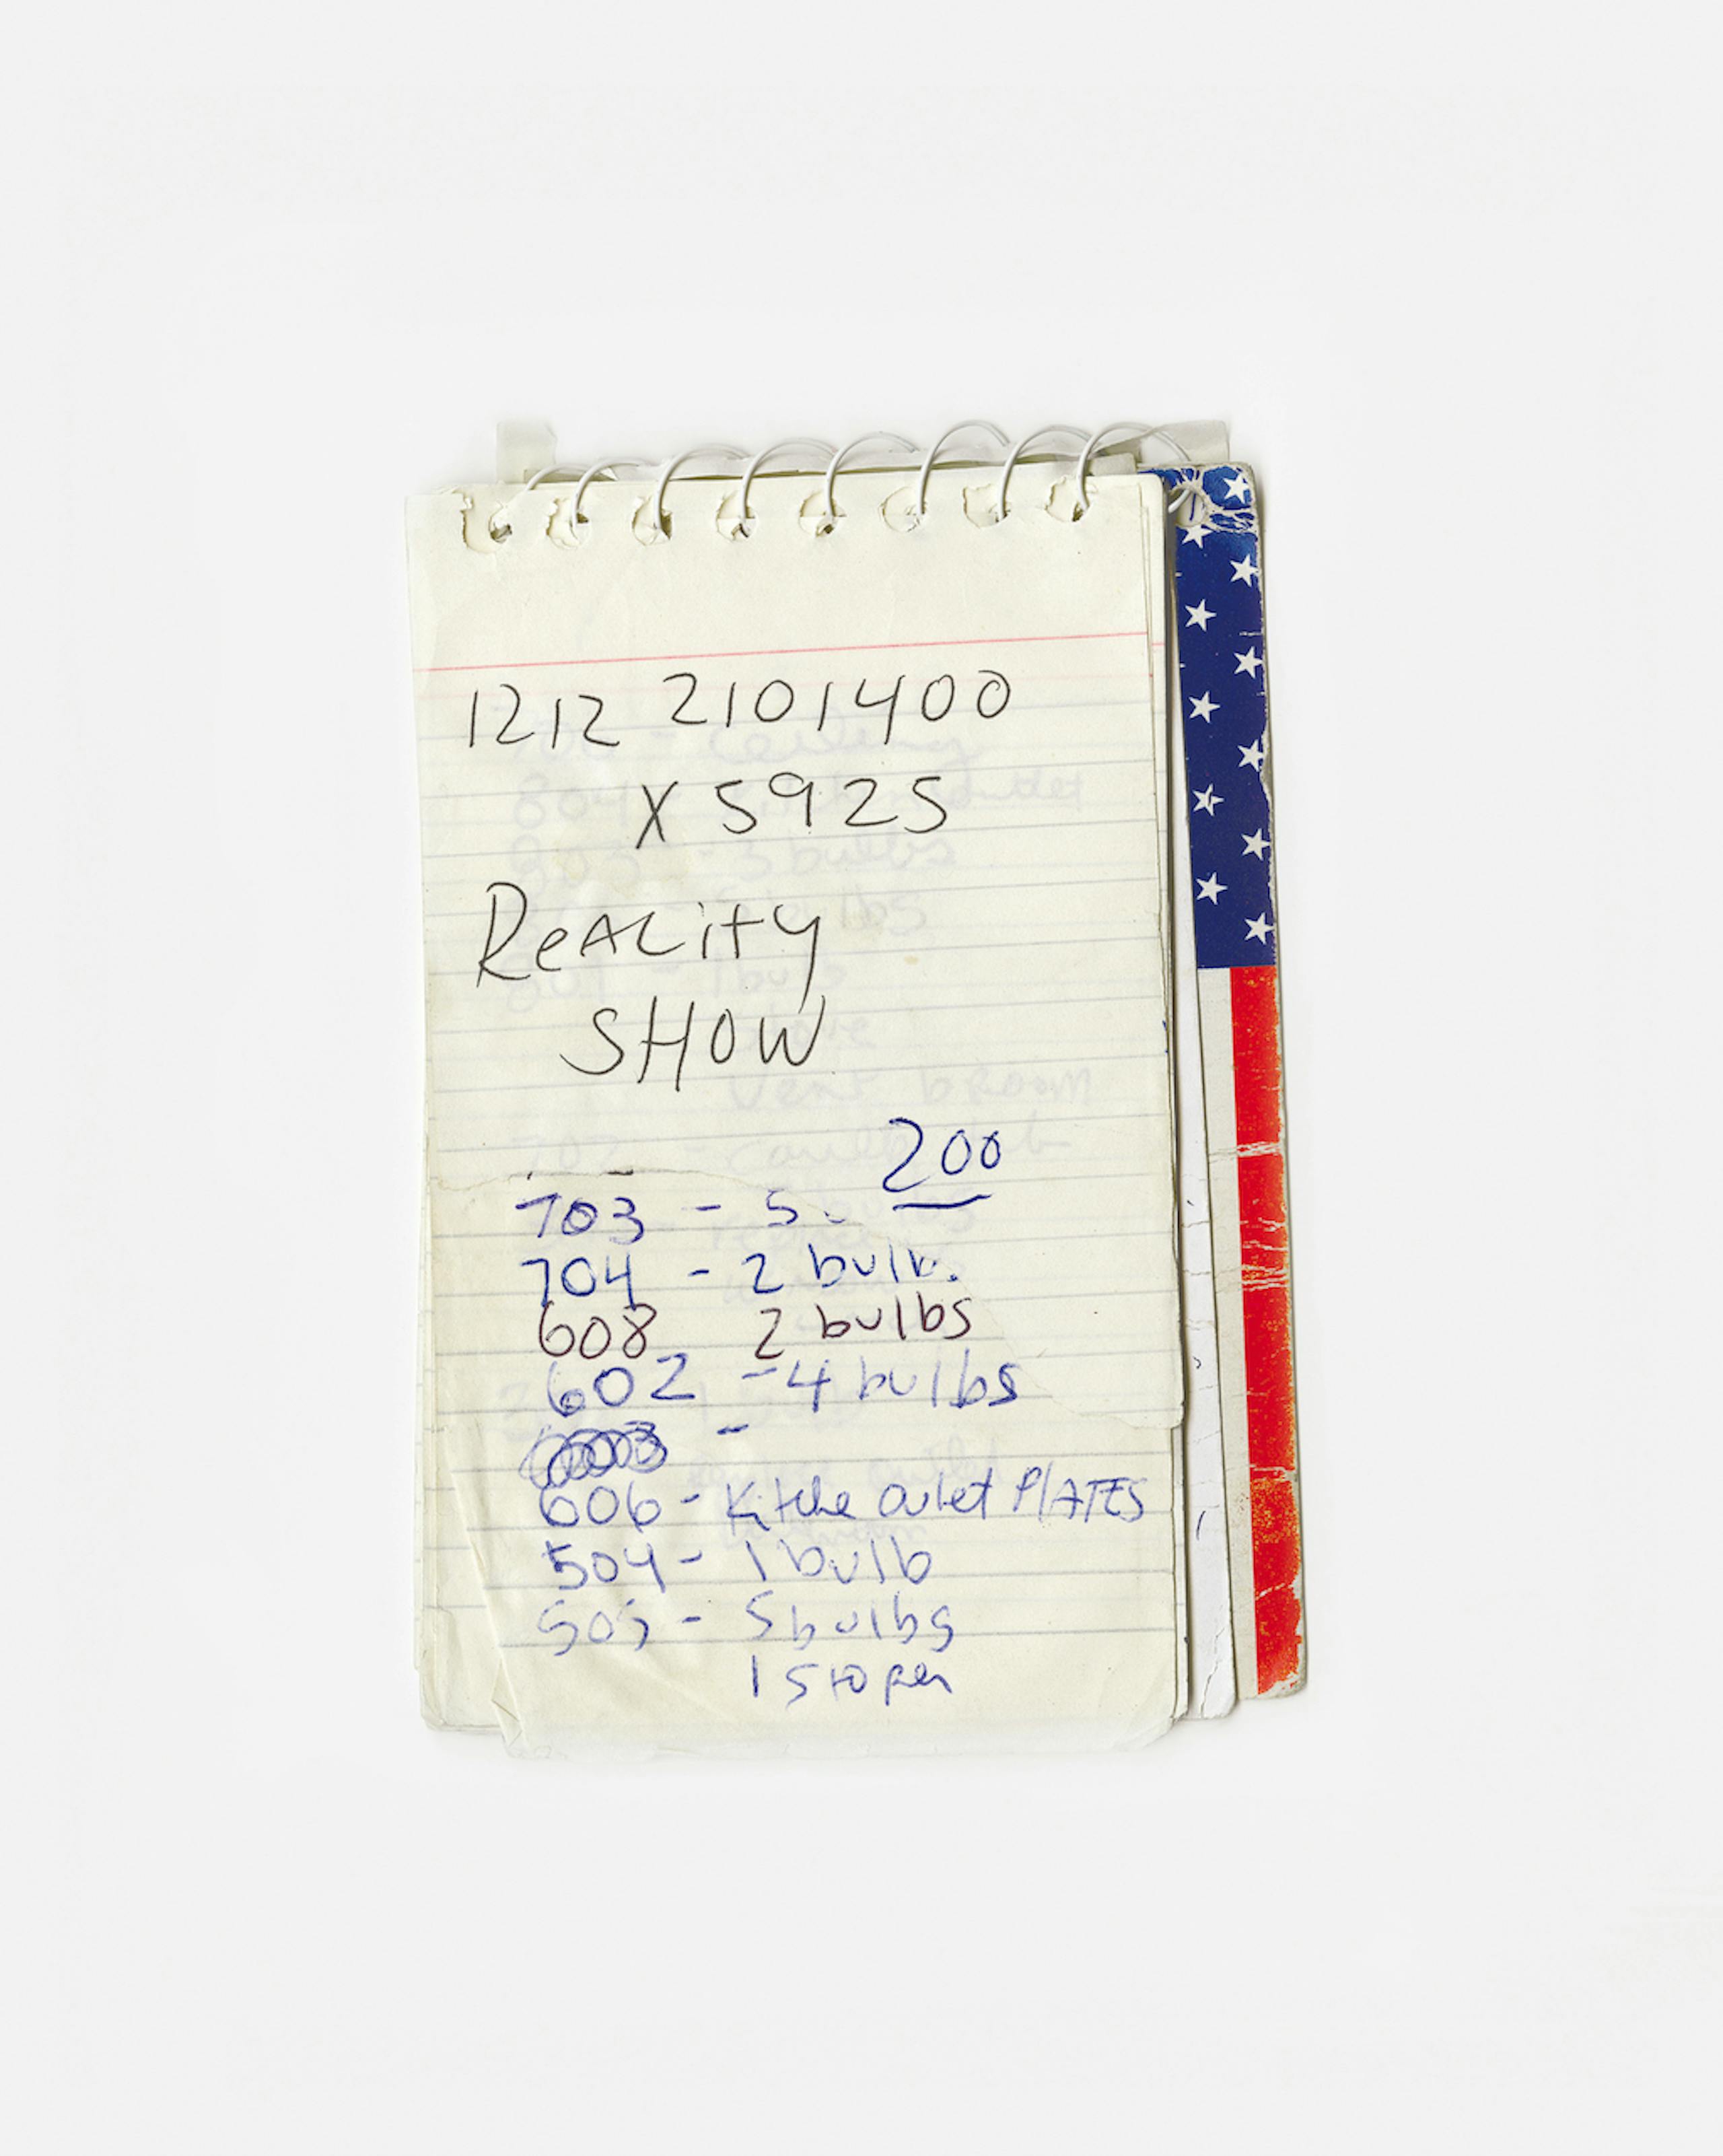 1212 2101400
X 5925
ReALity
SHOW
200
703 - 5
704 - 2 bulb
608 2 bulbs
602 - 4 bulbs
-
606 - Kitche outet PlATES
504 - 1 bulb
505 - 5 bulbs
1 stoper